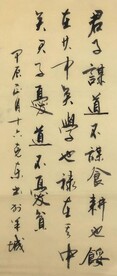 君子謀道不謀食耕也餒
在其中矣學也祿在其中
矣君子憂道不憂貧
甲辰正月十六東书於羊城